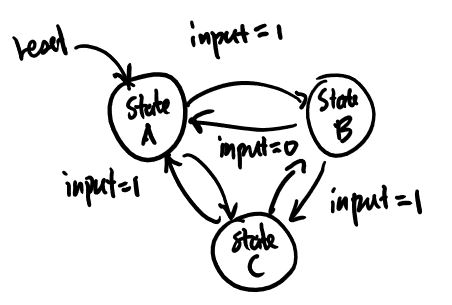 reset
input = 1
State
A
State
B
input=0
input=1
input=1
State
C